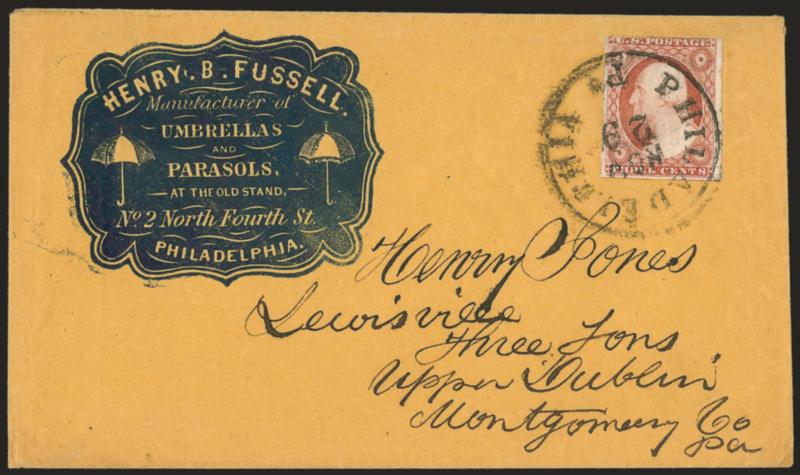 HENRY. B. FUSSELL.
Manufacturer of
UMBRELLAS
AND
PARASOLS,
AT THE OLD STAND,
No. 2 North Fourth St.
PHILADELPHIA.
U.S. POSTAGE
THREE CENTS
PHILADELPHIA Pa
Henry Jones
Lewisville
Three Tons
Upper Dublin
Montgomery Co
Pa